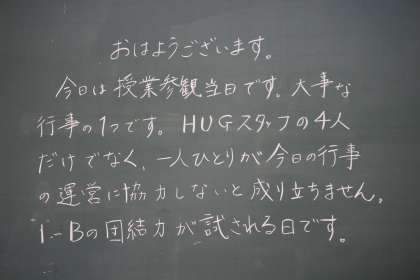 おはようございます。
今日は授業参観当日です。大事な
行事の1つです。HUGスタッフの4人
だけでなく、一人ひとりが今日の行事
の運営に協力しないと成り立ちません。
1-Bの団結力が試される日です。